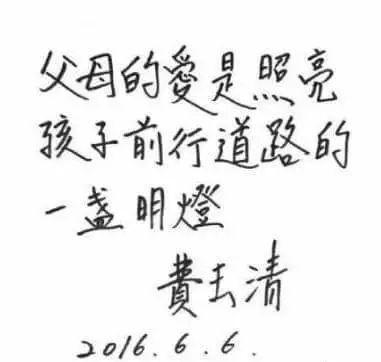 父母的愛是照亮
孩子前行道路的
一盞明燈
費玉清
2016.6.6.